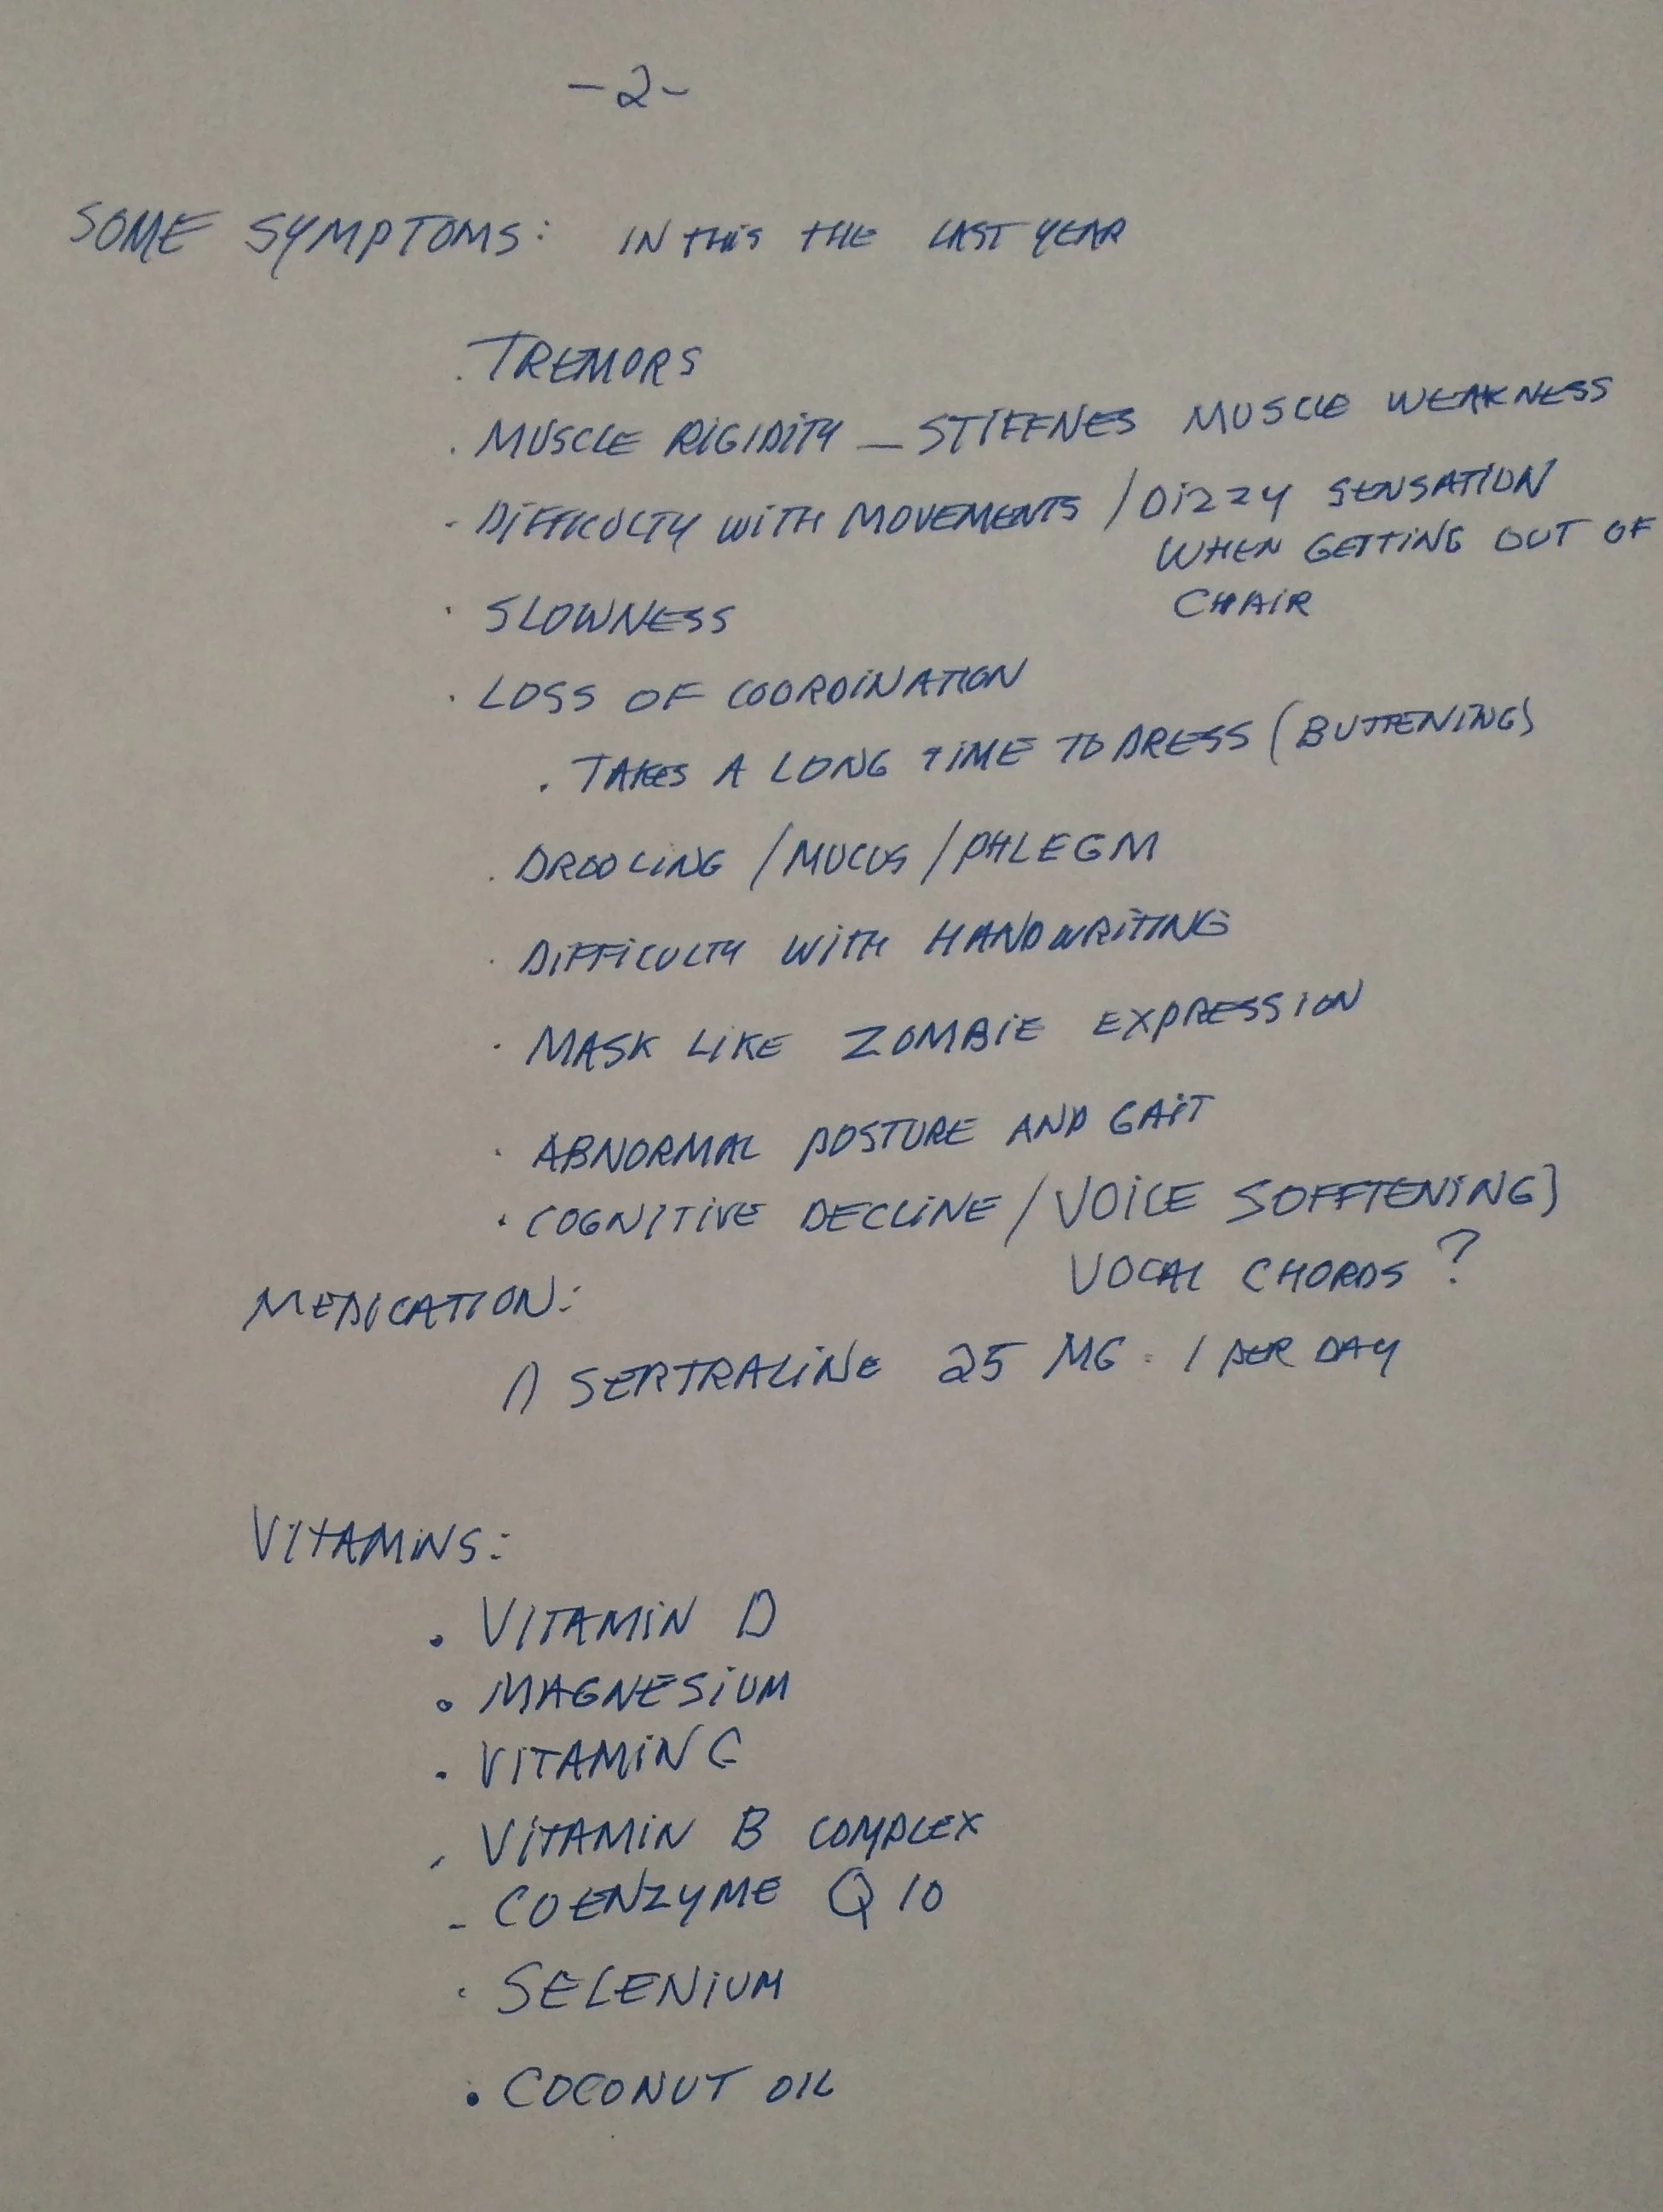 -2-
SOME SYMPTOMS: IN THIS THE LAST YEAR
. TREMORS
. MUSCLE RIGIDITY - STIFFNES MUSCLE WEAKNESS
- DIFFICULTY WITH MOVEMENTS / DIZZY SENSATION
WHEN GETTING OUT OF
CHAIR
· SLOWNESS
· LOSS OF COORDINATION
. TAKES A LONG TIME TO DRESS (BUTTENING)
. DROOLING / MUCUS / PHLEGM
· DIFFICULTY WITH HANDWRITING
· MASK LIKE ZOMBIE EXPRESSION
· ABNORMAL POSTURE AND GAIT
· COGNITIVE DECLINE / VOICE SOFFTENING)
VOCAL CHORDS ?
MEDICATION:
1) SERTRALINE 25 MG. 1 PER DAY
VITAMINS:
. VITAMIN D
. MAGNESIUM
. VITAMIN C
. VITAMIN B COMPLEX
- COENZYME Q 10
· SELENIUM
. COCONUT OIL